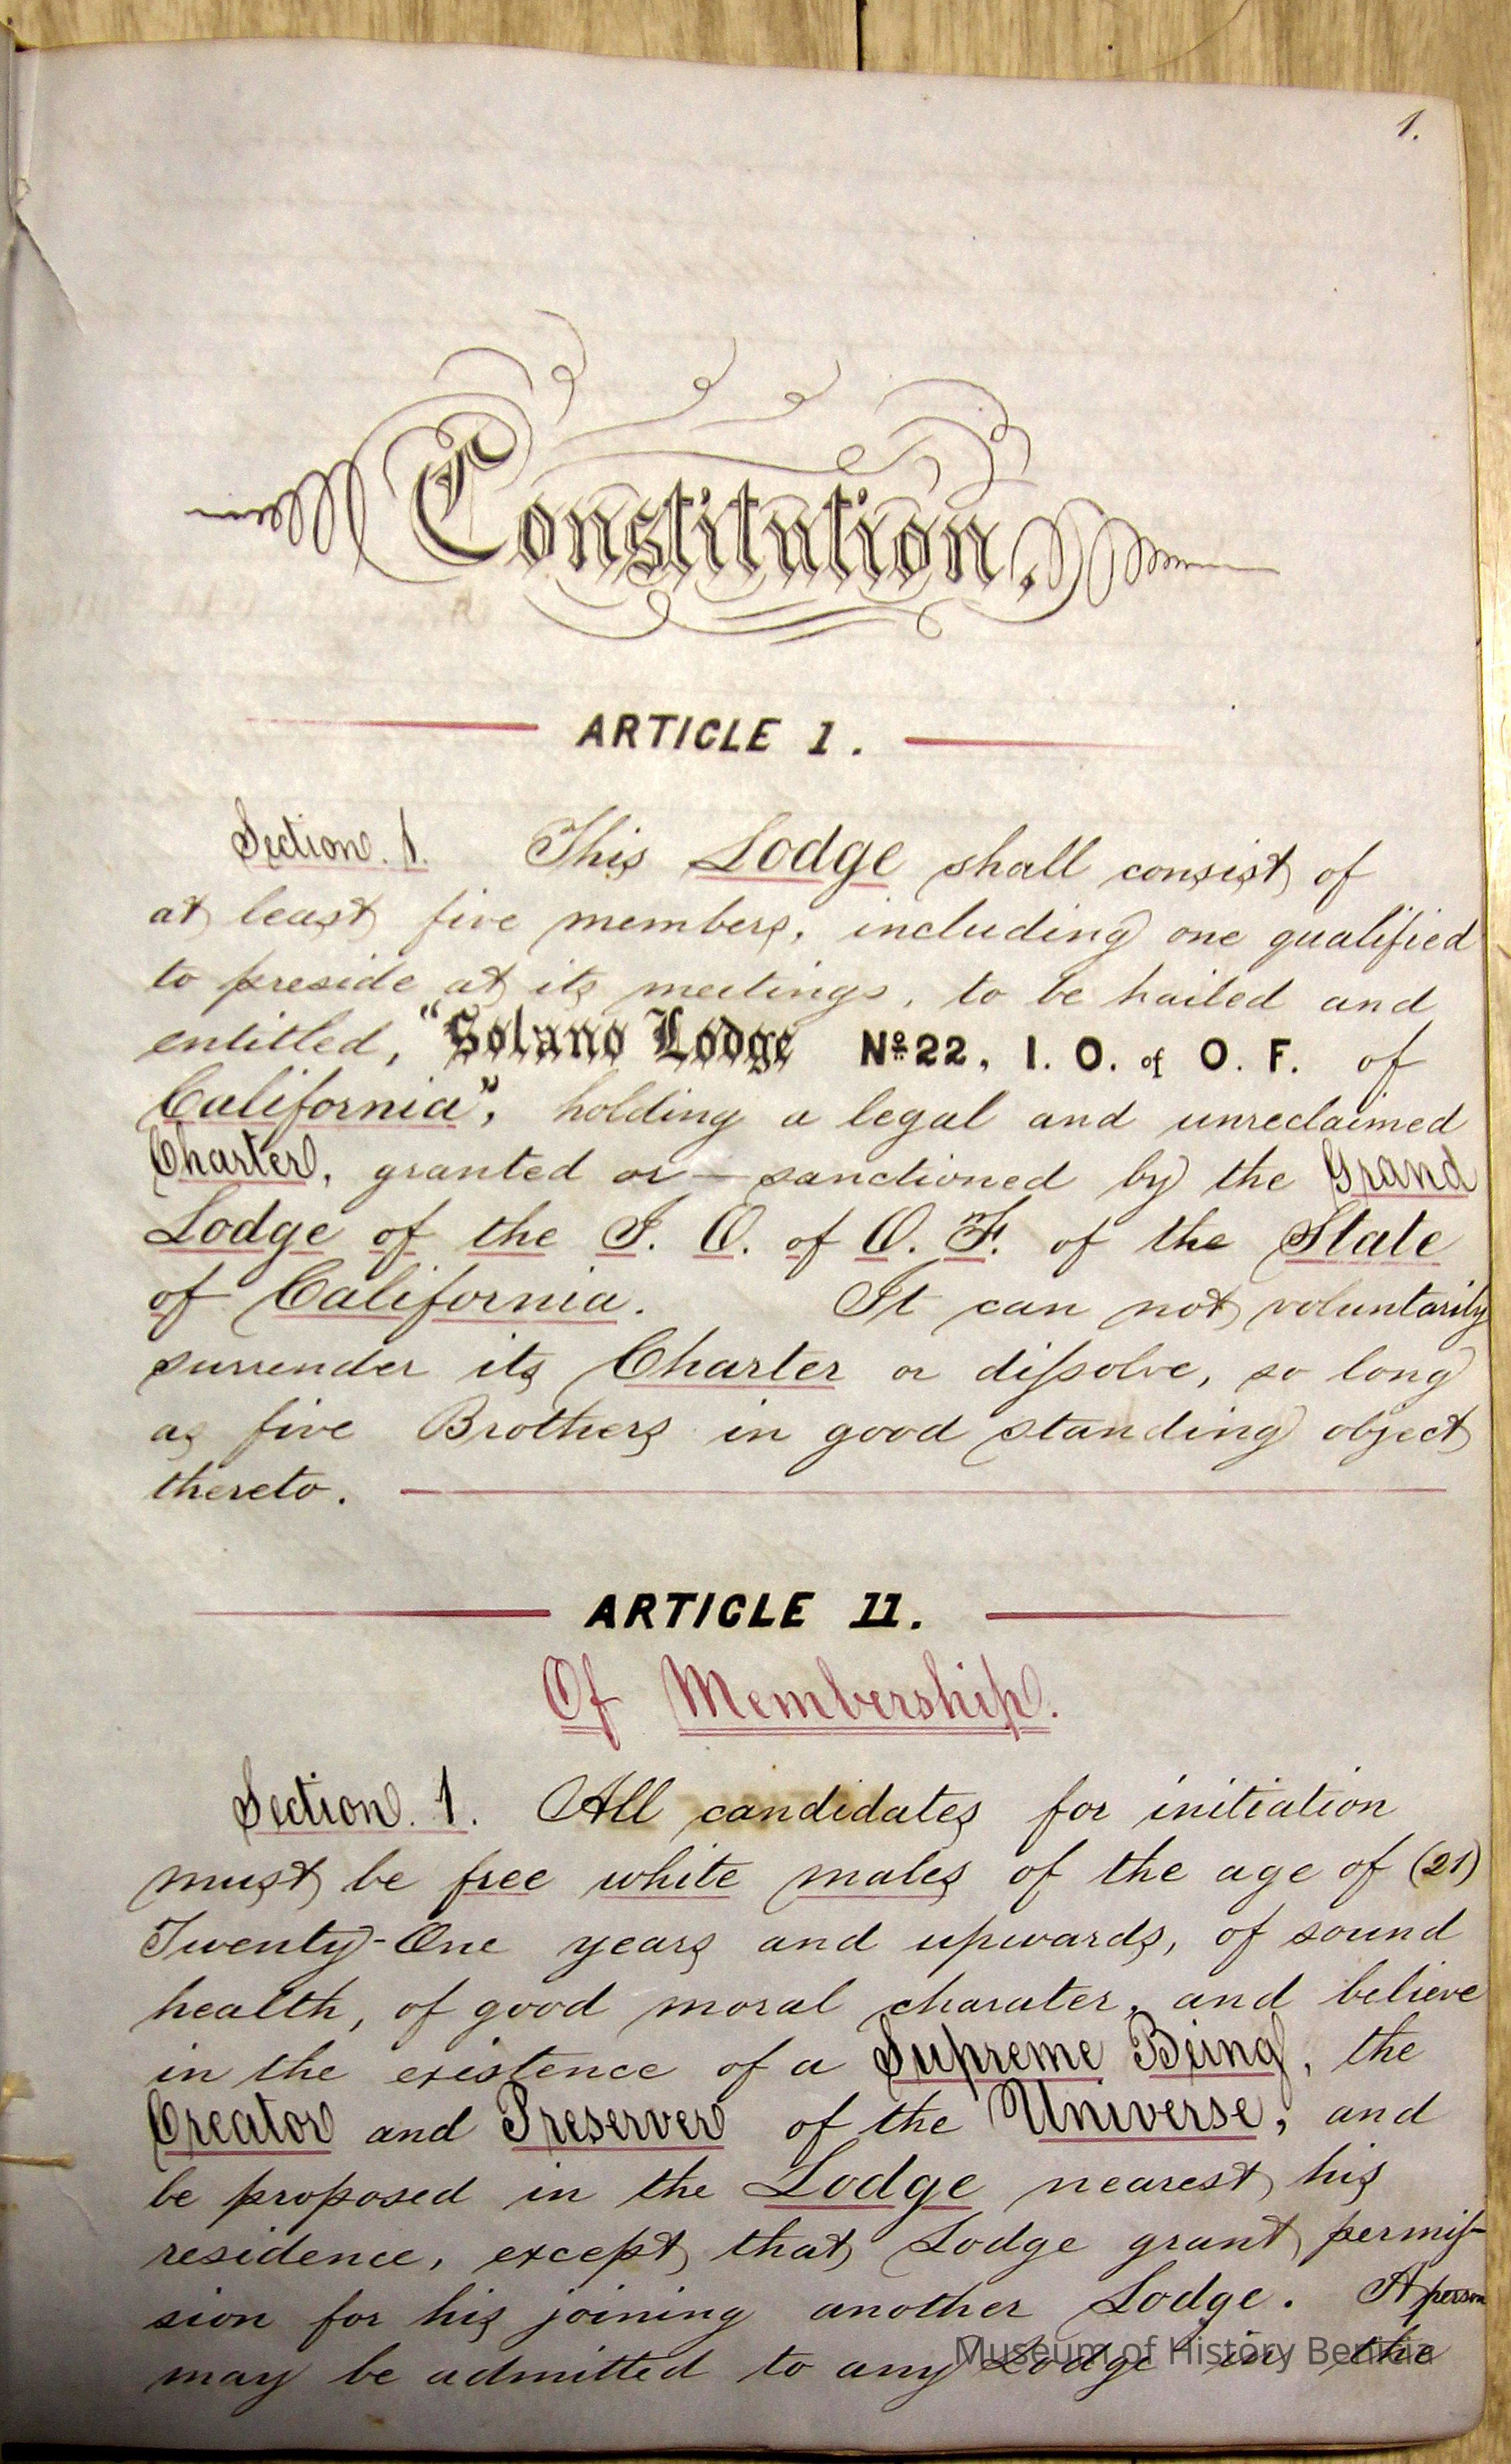 1.
Constitution.
ARTICLE 1.
Section. 1. This Lodge shall consist of
at least five members, including one qualified
to preside at its meetings, to be hailed and
entitled, "Solano Lodge No 22, I. O. of O. F. of
California", holding a legal and unreclaimed
Charter, granted or — sanctioned by the Grand
Lodge of the I. O. of O. F. of the State
of California. It can not voluntarily
surrender its Charter or dissolve, so long
as five Brothers in good standing object
thereto.
ARTICLE 11.
Of Membership.
Section. 1. All candidates for initiation
must be free white males of the age of (21)
Twenty-One years and upwards, of sound
health, of good moral charater, and believe
in the existence of a Supreme Being, the
Creator and Preserver of the Universe, and
be proposed in the Lodge nearest his
residence, except that Lodge grant permis-
sion for his joining another Lodge. A person
may be admitted to any Lodge in the
Museum of History Benicia